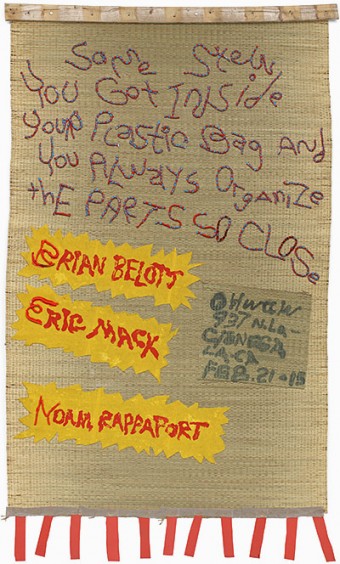 Some Stew
You Get Inside
Your Plastic Bag And
You Always Organize
thE PARTS SO CLOSe
BRIAN BELOTT
ERIC MACK
NOAM RAPPAPORT
@
937 N. La-
CIENEGA
LA-CA
FEB. 21-15